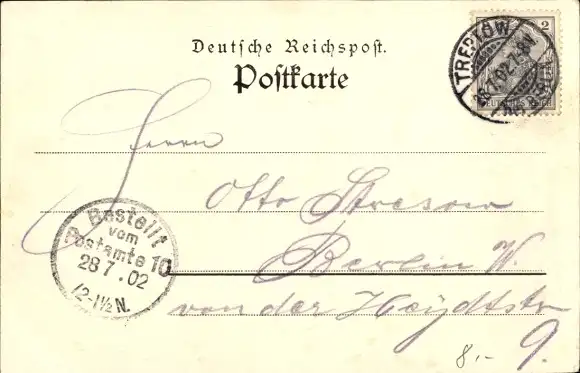 Deutsche Reichspost.
Postkarte
2
DEUTSCHES REICH
TREPTOW
28.7.02.7-8V.
Herrn
Otto Stresow
Berlin W.
von der Heydtstr
9.
Bestellt
vom
Postamte 10
28 7.02
12-1½N.
8.-